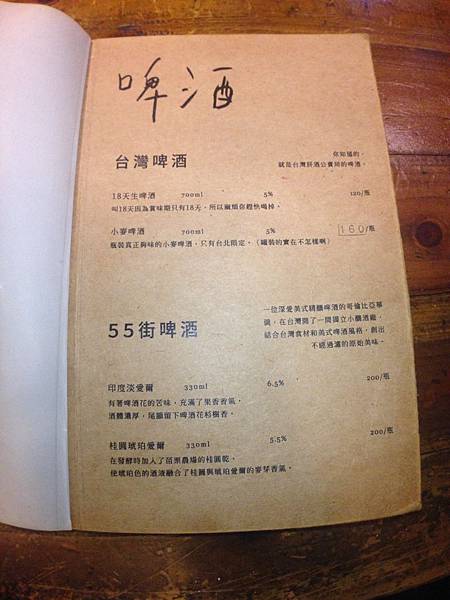 啤酒
台灣啤酒
你知道的,
就是台灣菸酒公賣局的啤酒。
18天生啤酒 700ml 5% 120/瓶
叫18天因為賞味期只有18天,所以麻煩你趕快喝掉。
小麥啤酒 700ml 5% 160/瓶
瓶裝真正夠味的小麥啤酒,只有台北限定。(罐裝的實在不怎樣啊)
55街啤酒
一位深愛美式精釀啤酒的哥倫比亞華
僑,在台灣開了一間獨立小釀酒廠。
結合台灣食材和美式啤酒風格,創出
不經過濾的原始美味。
印度淡愛爾 330ml 6.5% 200/瓶
有著啤酒花的苦味,充滿了果香香氣。
酒體濃厚,尾韻留下啤酒花杉樹香。
桂圓琥珀愛爾 330ml 5.5% 200/瓶
在發酵時加入了苗栗農場的桂圓乾,
使琥珀色的酒液融合了桂圓與琥珀愛爾的麥芽香氣。